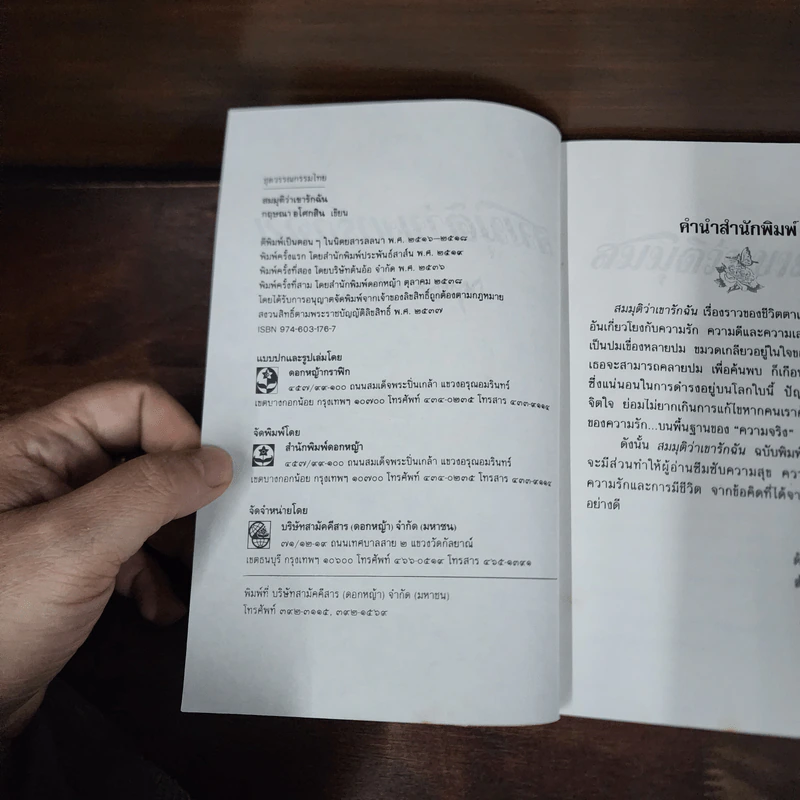 ชุดวรรณกรรมไทย
สมมุติว่าเขารักฉัน
กฤษณา อโศกสิน เขียน
ตีพิมพ์เป็นตอน ๆ ในนิตยสารลลนา พ.ศ. ๒๕๑๖-๒๕๑๘
พิมพ์ครั้งแรก โดยสำนักพิมพ์ประพันธ์สาส์น พ.ศ. ๒๕๑๙
พิมพ์ครั้งที่สอง โดยบริษัทต้นอ้อ จำกัด พ.ศ. ๒๕๓๖
พิมพ์ครั้งที่สาม โดยสำนักพิมพ์ดอกหญ้า ตุลาคม ๒๕๓๘
โดยได้รับการอนุญาตจัดพิมพ์จากเจ้าของลิขสิทธิ์ถูกต้องตามกฎหมาย
สงวนสิทธิ์ตามพระราชบัญญัติลิขสิทธิ์ พ.ศ. ๒๕๓๗
ISBN 974-603-176-7
แบบปกและรูปเล่มโดย
ดอกหญ้ากราฟิก
๔๕๗/๙๙-๑๐๐ ถนนสมเด็จพระปิ่นเกล้า แขวงอรุณอมรินทร์
เขตบางกอกน้อย กรุงเทพฯ ๑๐๗๐๐ โทรศัพท์ ๔๓๔-๐๒๓๕ โทรสาร ๔๓๓-๙๑๑๕
จัดพิมพ์โดย
สำนักพิมพ์ดอกหญ้า
๔๕๗/๙๙-๑๐๐ ถนนสมเด็จพระปิ่นเกล้า แขวงอรุณอมรินทร์
เขตบางกอกน้อย กรุงเทพฯ ๑๐๗๐๐ โทรศัพท์ ๔๓๔-๐๒๓๕ โทรสาร ๔๓๓-๙๑๑๕
จัดจำหน่ายโดย
บริษัทสามัคคีสาร (ดอกหญ้า) จำกัด (มหาชน)
๗๑/๑๒-๑๙ ถนนเทศบาลสาย ๒ แขวงวัดกัลยาณ์
เขตธนบุรี กรุงเทพฯ ๑๐๖๐๐ โทรศัพท์ ๔๖๖-๐๕๑๙ โทรสาร ๔๖๕-๑๓๙๑
พิมพ์ที่ บริษัทสามัคคีสาร (ดอกหญ้า) จำกัด (มหาชน)
โทรศัพท์ ๓๙๒-๓๑๑๕, ๓๙๒-๑๕๖๙
คำนำสำนักพิมพ์
สมมุติว่าเขารักฉัน เรื่องราวของชีวิต
อันเกี่ยวโยงกับความรัก ความดีและความ
เป็นปมเขื่องหลายปม ขมวดเกลียวอยู่ในใจ
เธอจะสามารถคลายปม เพื่อค้นพบ
ซึ่งแน่นอนในการดำรงอยู่บนโลกใบนี้
จิตใจ ย่อมไม่ยากเกินการแก้ไขหากคนเรา
ของความรัก...บนพื้นฐานของ "ความจริง"
ดังนั้น สมมุติว่าเขารักฉัน ฉบับพิมพ์
จะมีส่วนทำให้ผู้อ่านซึมซับความสุข
ความรักและการมีชีวิต จากข้อคิดที่ได้
อย่างดี